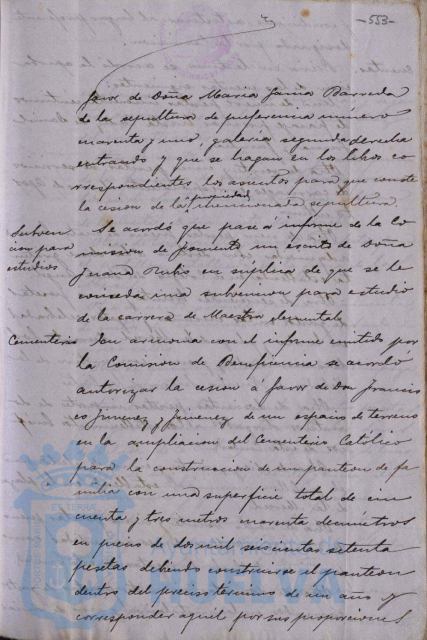 -553-
favor de Doña Maria Jama Barreda
de la sepultura de preferencia número
noventa y uno, galería segunda derecha
entrando y que se hagan en los libros co
rrespondientes los asientos para que conste
la cesion de la propiedad mencionada sepultura.
Subven
cion para
estudios
Se acordó que pase á informe de la Co
mision de fomento un escrito de Doña
Juana Rubio en súplica de que se le
conceda una subvencion para estudio
de la carrera de Maestra elemental.
Cementerio
En armonia con el informe emitido por
la Comision de Beneficencia se acordó
autorizar la cesion á favor de Don Francis
co Jimenez y Jimenez de un espacio de terreno
en la ampliacion del Cementerio Católico
para la construccion de un panteon de fa
milia con una superficie total de cin
cuenta y tres metros noventa decímetros
en precio de dos mil seiscientas setenta
pesetas debiendo construirse el panteon
dentro del preciso término de un año y
corresponder aquel por sus proporciones
HUELVA